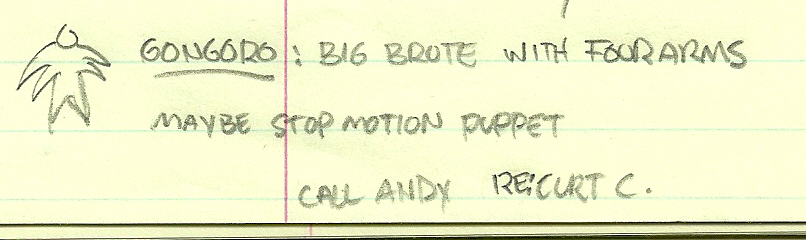 GONGORO : BIG BROTE WITH FOUR ARMS
MAYBE STOP MOTION PUPPET
CALL ANDY RE: CURT C.